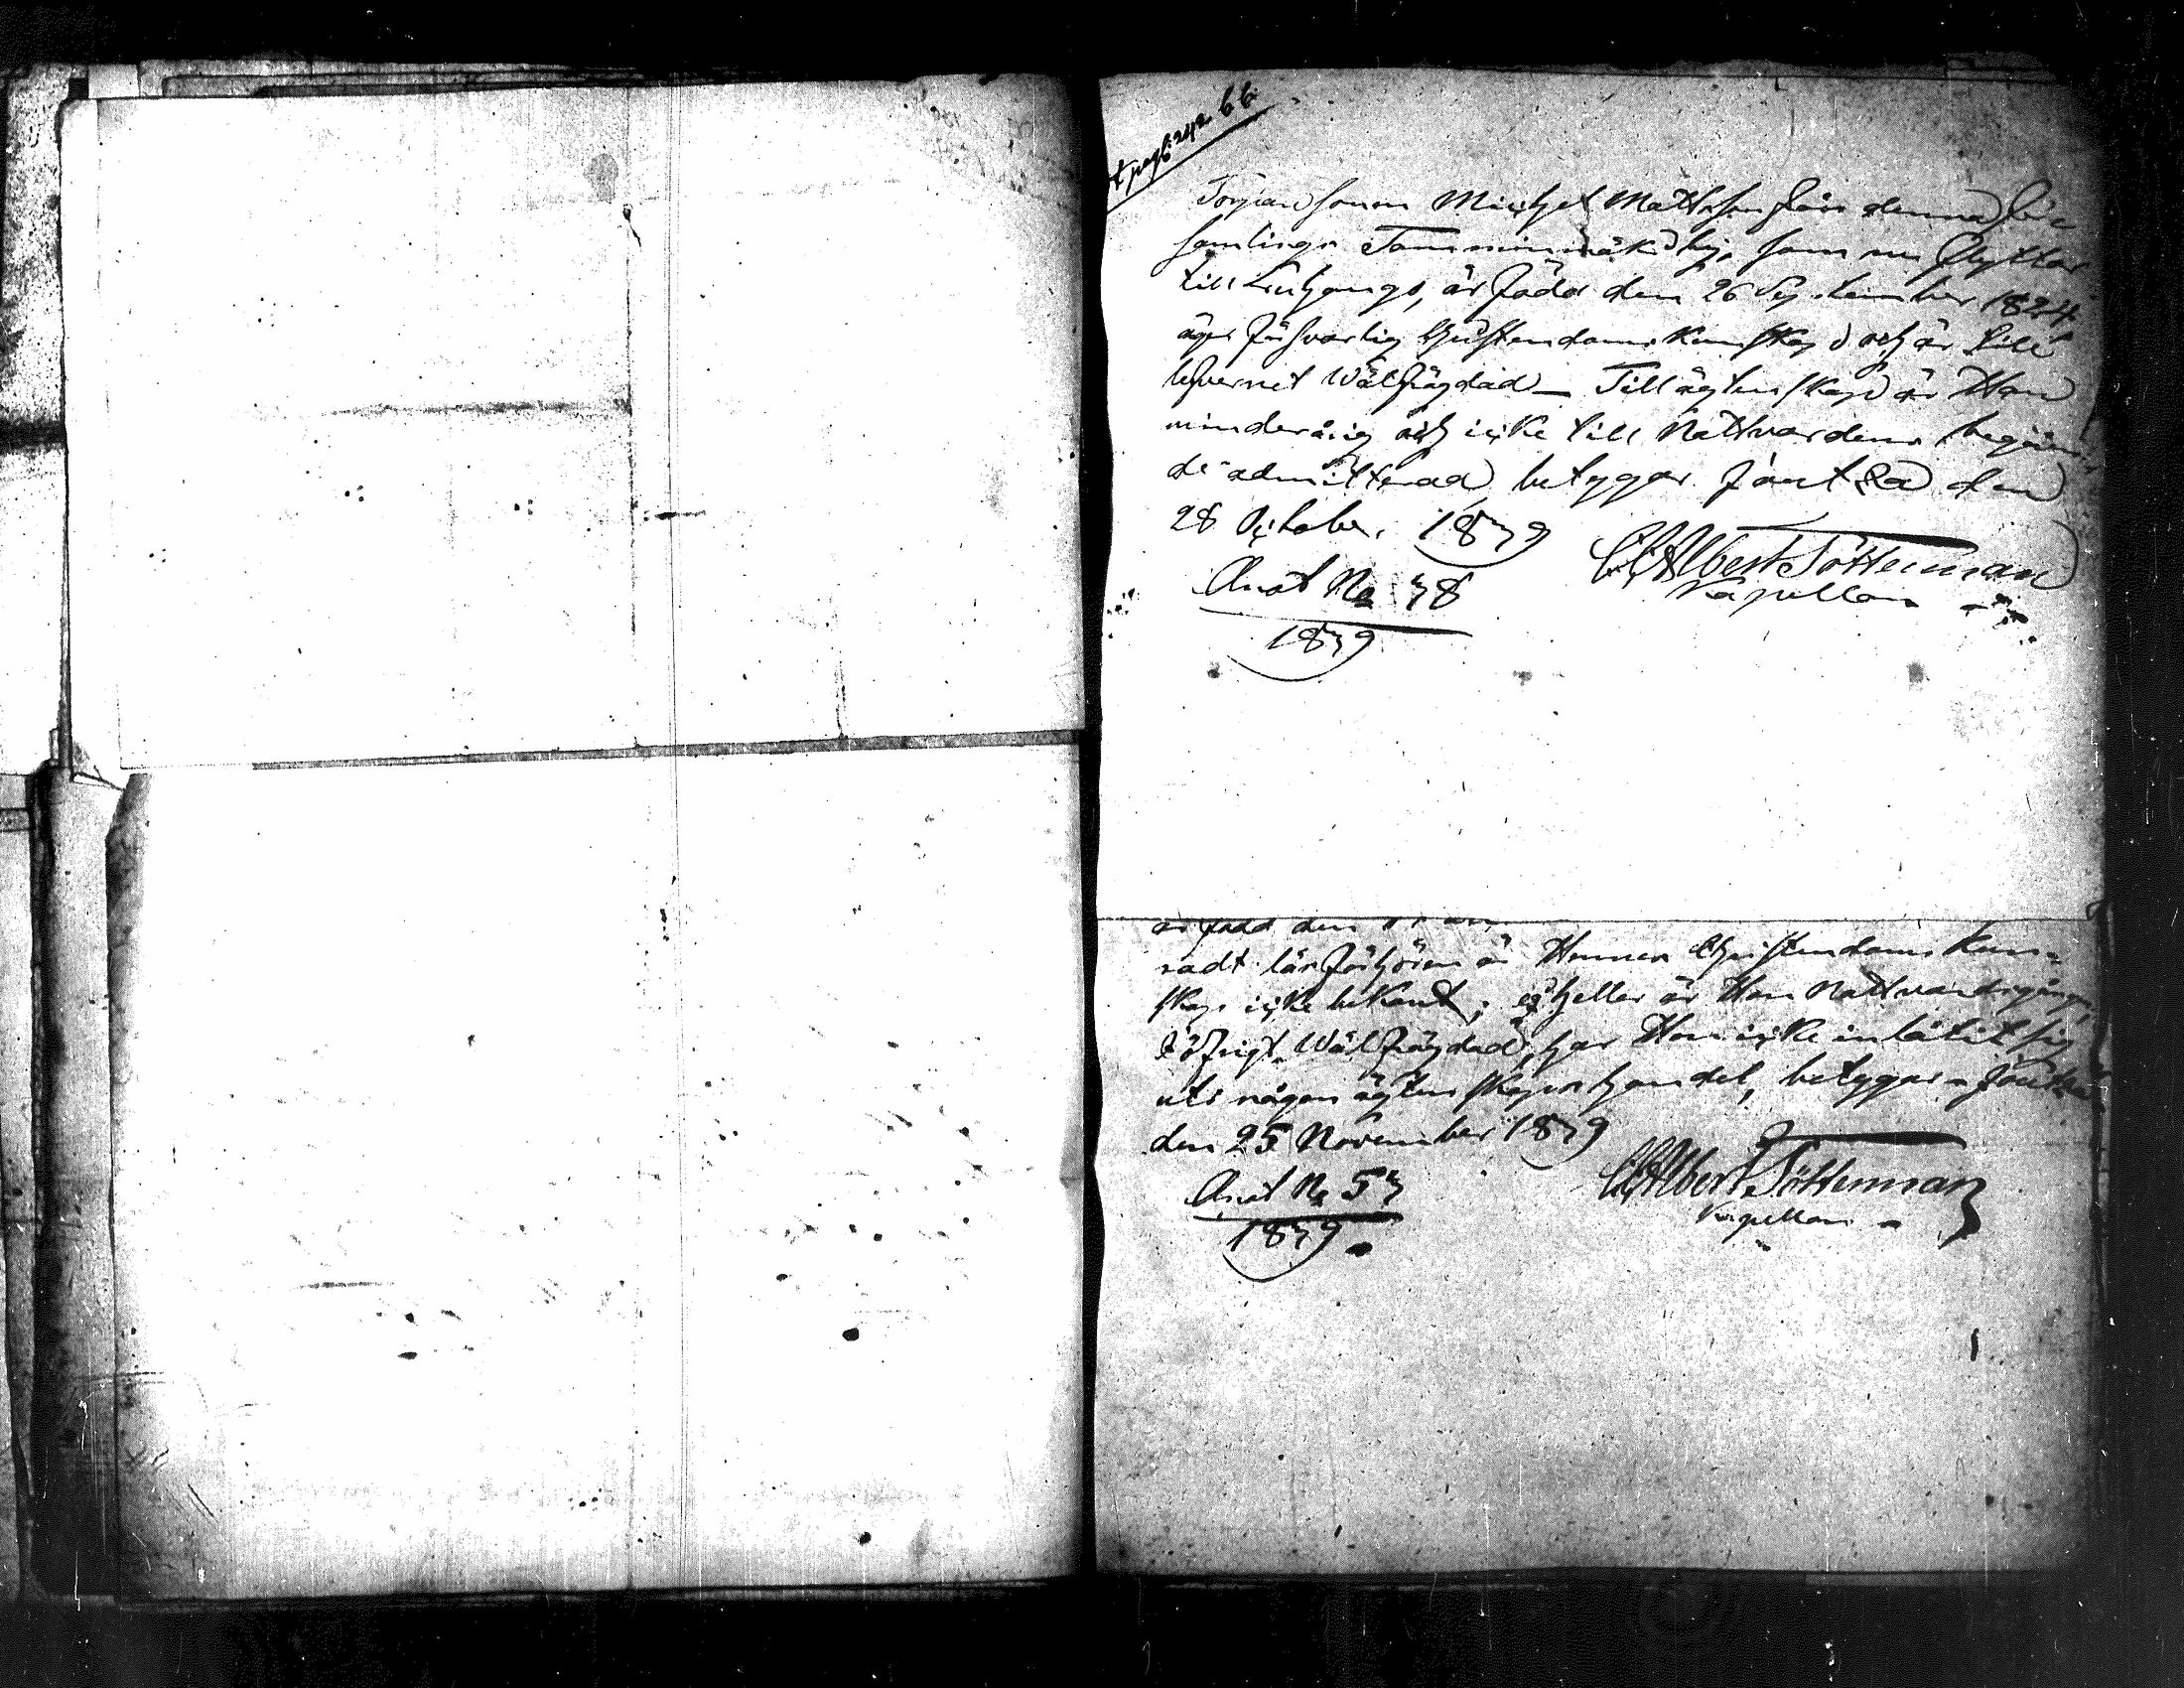 pag: 242 66
Torparesonen Michel Mattsson från denna för-
samlings Tamminmäki by, som nu flyttar
till Liljango, är född den 26 September 1824
äger försvarlig Christendoms kunskap och är till
lefvernet Wälfrägdad — Till ägtenskap är Han
minderårig och icke till Nattvardens begåen-
de admitterad, betygar. Jäutka den
28 October. 1839
C. C. Albert Tötterman
Kapellan
Anot No 38
1839
är född den
radt läsförhören är Hennes Christendoms Kun-
skap icke bekant; ej heller är Hon Nattvardsgången
Öfrigt Wälfrägdad, har Hon icke inlåtit sig
uti någon ägtenskapshandel, betygar Jäutka
den 25 November 1839
C. C. Albert Tötterman
Kapellan
Anot No 53
1839